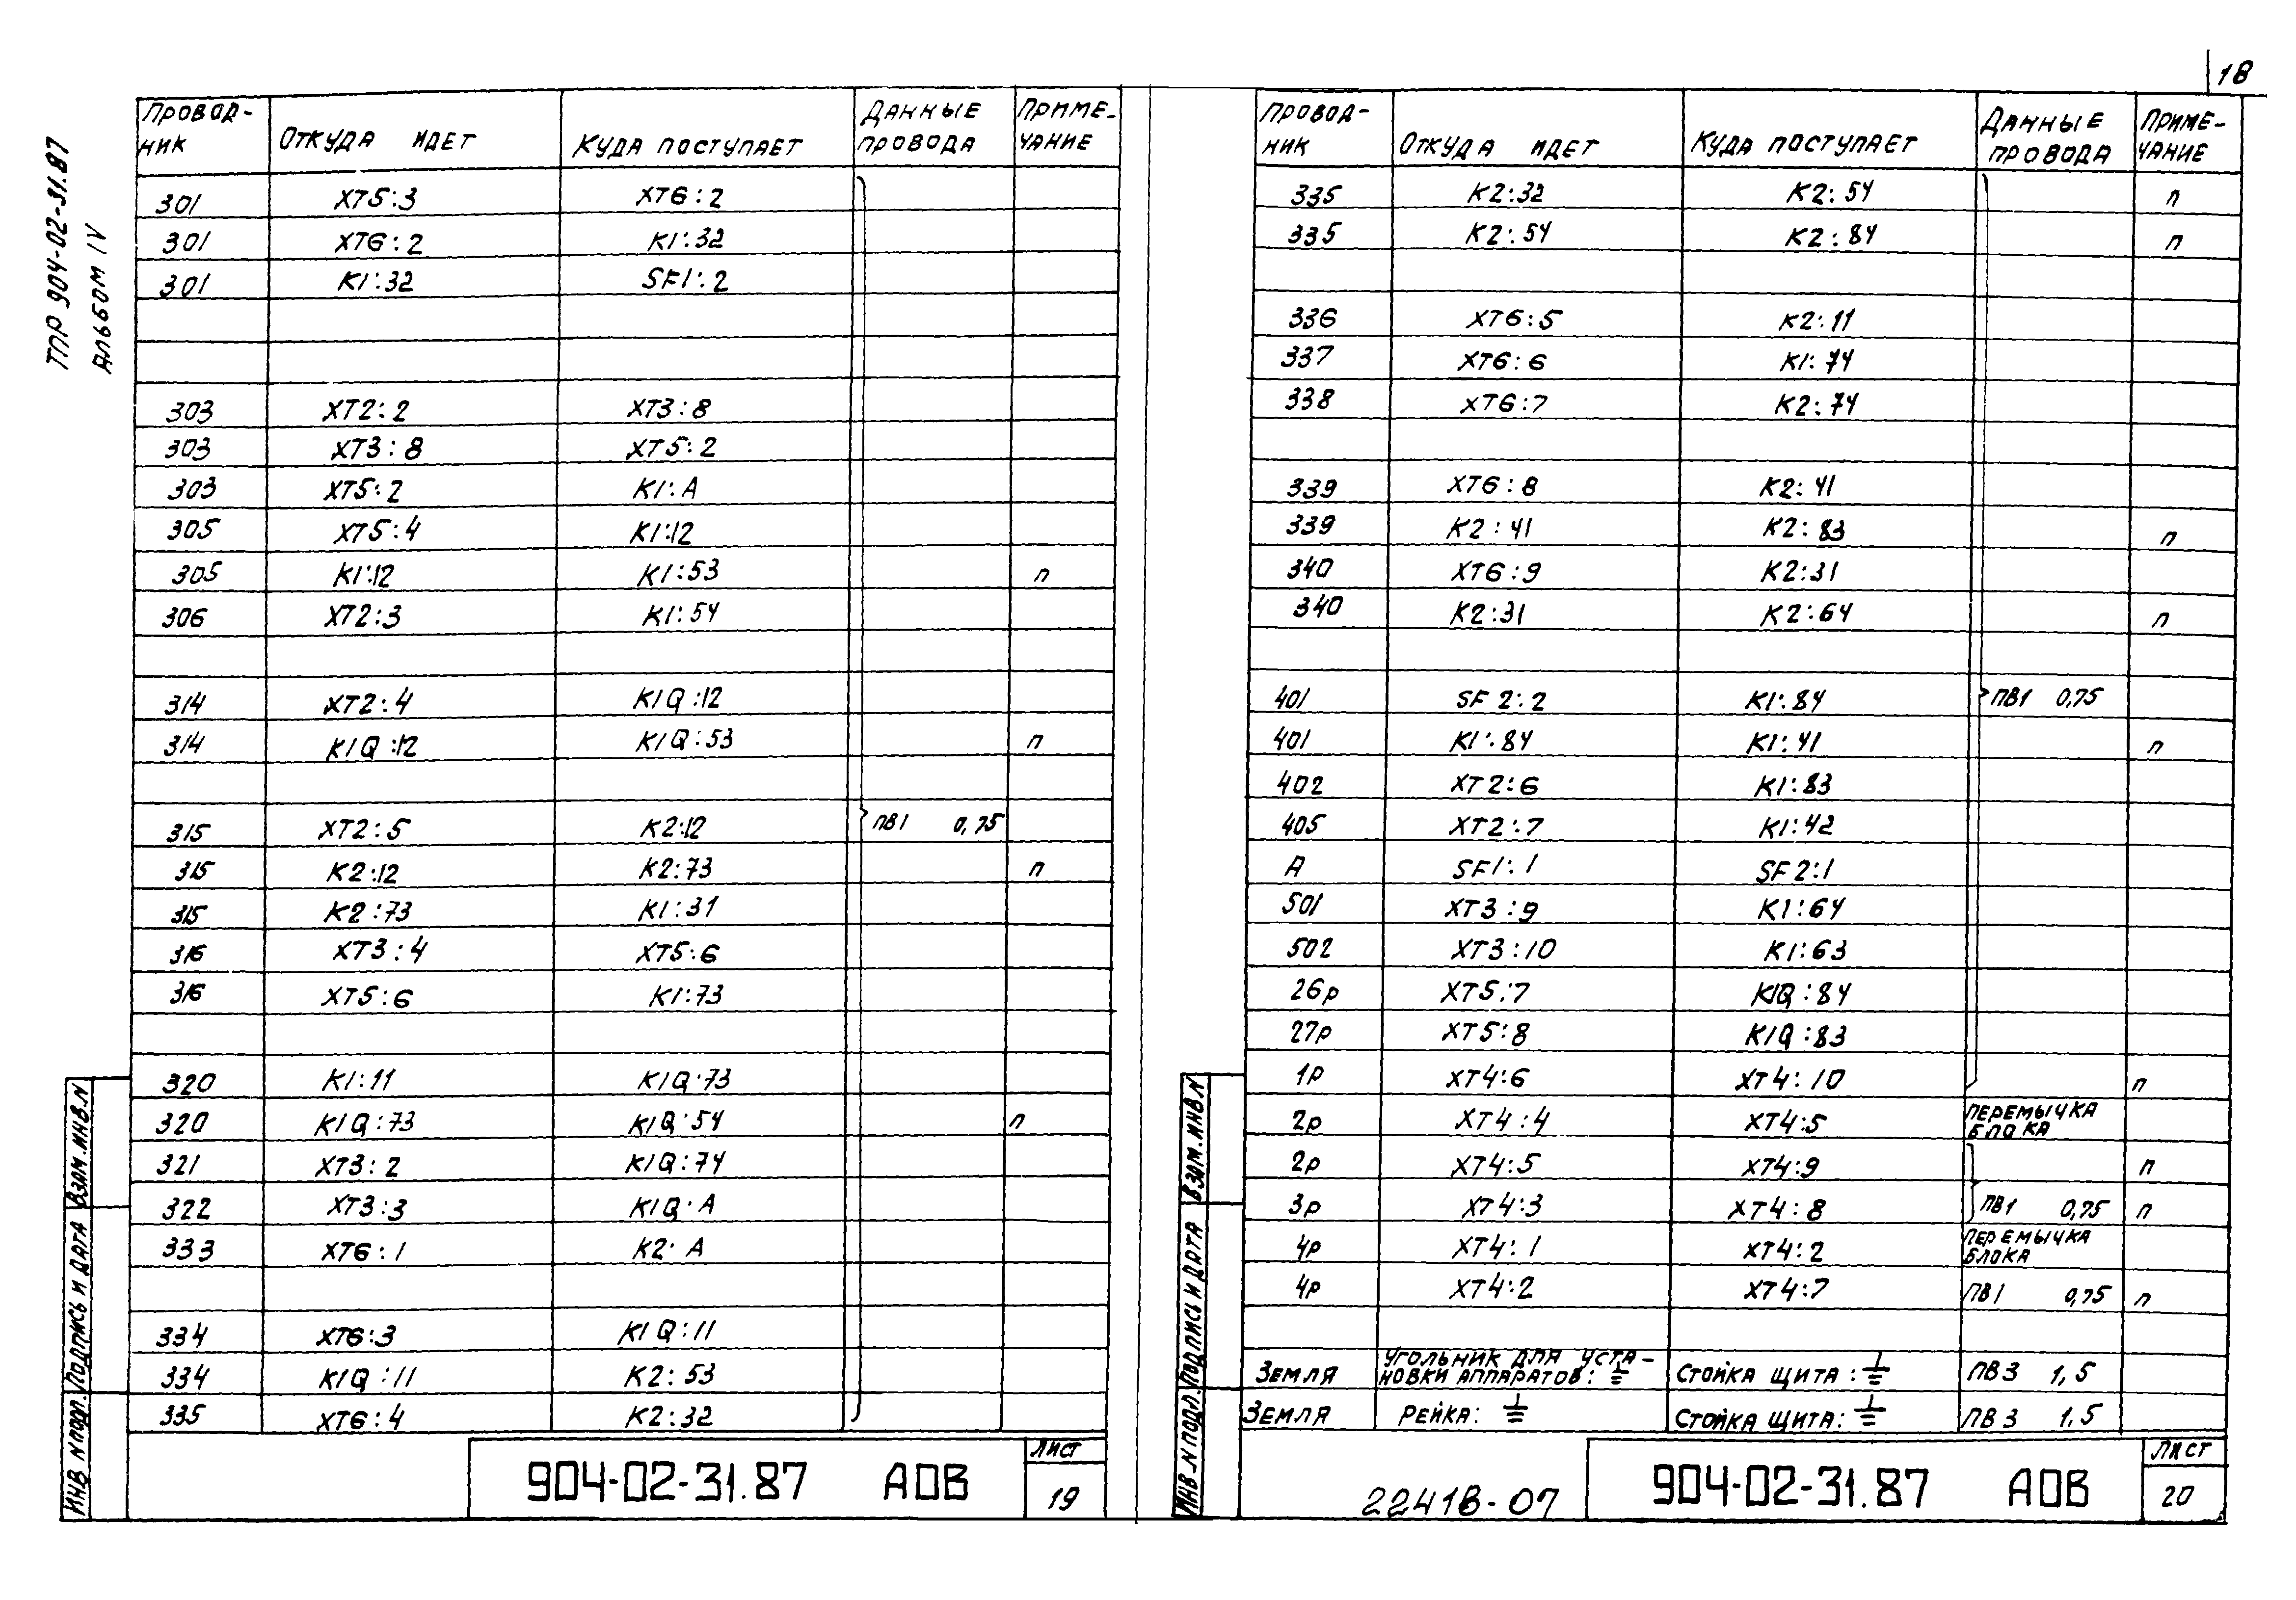 18
ТПР 904-02-31.87
Альбом IV
Провод-ник Откуда идет Куда поступает Данные провода Приме-чание
301 ХТ5:3 ХТ6:2
301 ХТ6:2 К1:32
301 К1:32 SF1:2
303 ХТ2:2 ХТ3:8
303 ХТ3:8 ХТ5:2
303 ХТ5:2 К1:А
305 ХТ5:4 К1:12
305 К1:12 К1:53 п
306 ХТ2:3 К1:54
314 ХТ2:4 К1Q:12
314 К1Q:12 К1Q:53 п
315 ХТ2:5 К2:12 ПВ1 0,75
315 К2:12 К2:73 п
315 К2:73 К1:31
316 ХТ3:4 ХТ5:6
316 ХТ5:6 К1:73
320 К1:11 К1Q:73
320 К1Q:73 К1Q:54 п
321 ХТ3:2 К1Q:74
322 ХТ3:3 К1Q:А
333 ХТ6:1 К2:А
334 ХТ6:3 К1Q:11
334 К1Q:11 К2:53
335 ХТ6:4 К2:32
Инв N подл. Подпись и дата Взам.инв.N
904-02-31.87 АОВ
Лист
19
Провод-ник Откуда идет Куда поступает Данные провода Приме-чание
335 К2:32 К2:54 п
335 К2:54 К2:84 п
336 ХТ6:5 К2:11
337 ХТ6:6 К1:74
338 ХТ6:7 К2:74
339 ХТ6:8 К2:41
339 К2:41 К2:83 п
340 ХТ6:9 К2:31
340 К2:31 К2:64 п
401 SF2:2 К1:84 ПВ1 0,75
401 К1:84 К1:41 п
402 ХТ2:6 К1:83
405 ХТ2:7 К1:42
А SF1:1 SF2:1
501 ХТ3:9 К1:64
502 ХТ3:10 К1:63
26р ХТ5:7 К1Q:84
27р ХТ5:8 К1Q:83
1р ХТ4:6 ХТ4:10 п
2р ХТ4:4 ХТ4:5 Перемычка блока
2р ХТ4:5 ХТ4:9 п
3р ХТ4:3 ХТ4:8 ПВ1 0,75 п
4р ХТ4:1 ХТ4:2 Перемычка блока
4р ХТ4:2 ХТ4:7 ПВ1 0,75 п
Земля Угольник для уста-новки аппаратов:⏚ Стойка щита:⏚ ПВ3 1,5
Земля Рейка:⏚ Стойка щита:⏚ ПВ3 1.5
Инв N подл. Подпись и дата Взам.инв.N
22418-07
904-02-31.87 АОВ
Лист
20